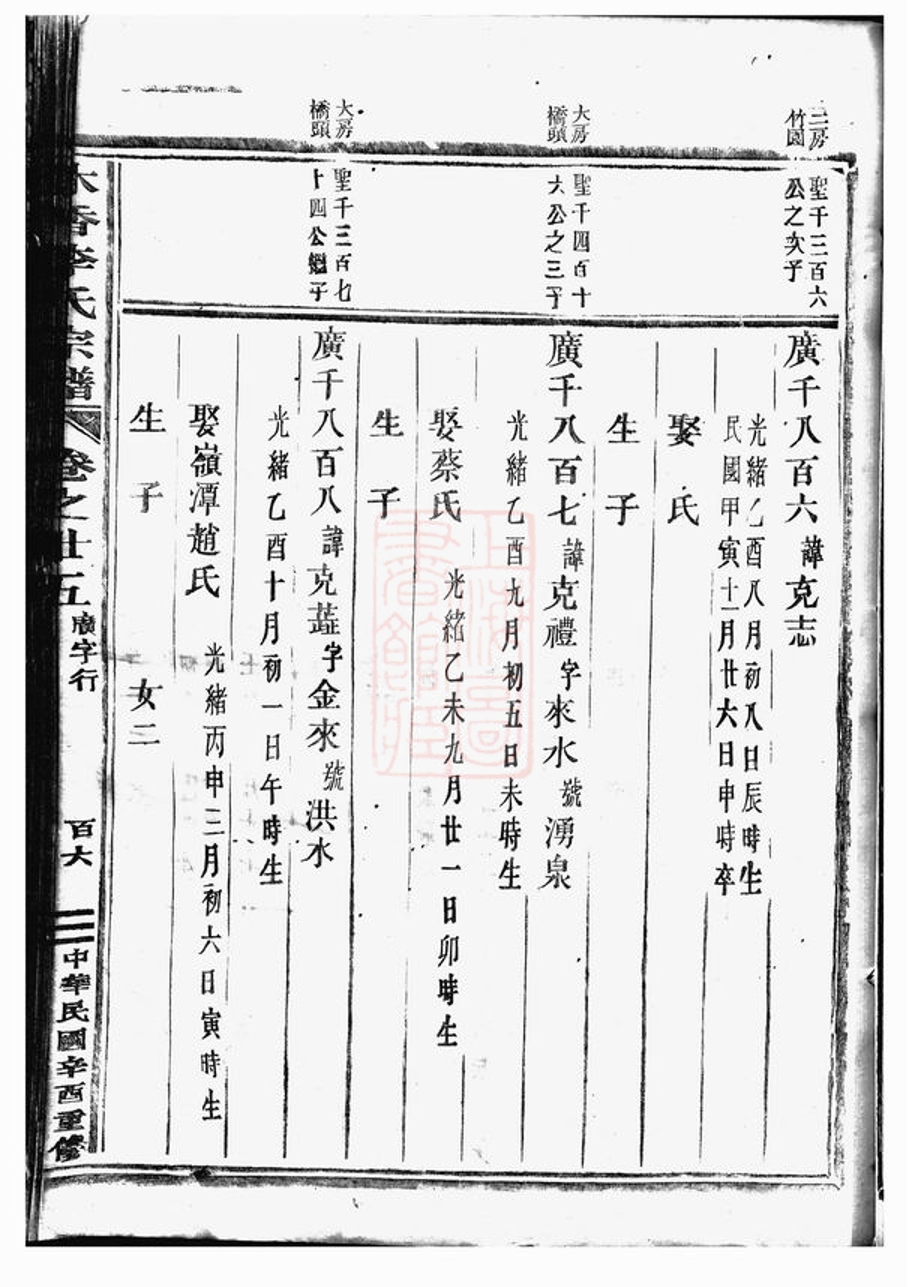 三房
竹園
聖千三百六
公之次子
廣千八百六諱克志
光緒乙酉八月初八日辰時生
民國甲寅十一月廿六日申時卒
娶 氏
生 子
大房
橋頭
聖千四百十
六公之三子
廣千八百七諱克禮字來水號湧泉
光緒乙酉九月初五日未時生
娶蔡氏 光緒乙未九月廿一日卯時生
生 子
大房
橋頭
聖千三百七
十四公繼子
廣千八百八諱克蘓字金來號洪水
光緒乙酉十月初一日午時生
娶嶺潭趙氏 光緒丙申三月初六日寅時生
生 子 女二
香李氏宗譜 卷之廿五 廣字行 百六 中華民國辛酉重修